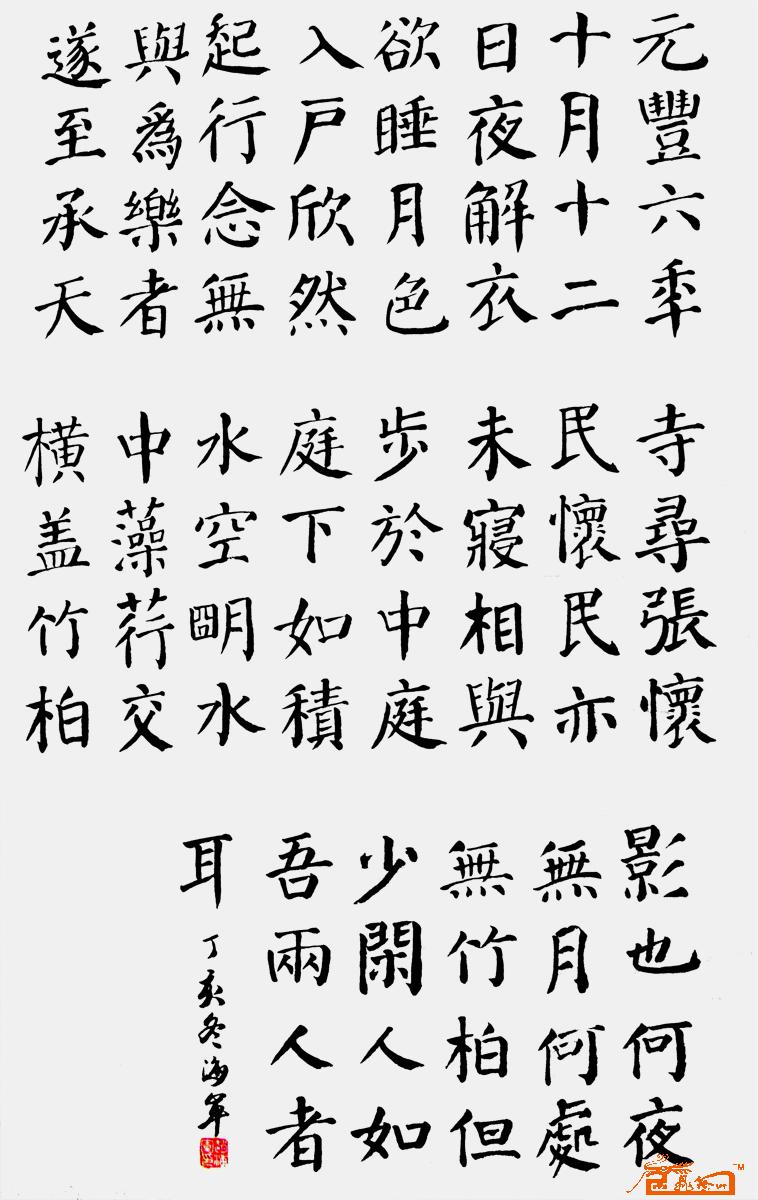 元豐六秊
十月十二
日夜解衣
欲睡月色
入戶欣然
起行念無
與爲樂者
遂至承天
寺尋張懷
民懷民亦
未寢相與
步於中庭
庭下如積
水空朙水
中藻荇交
橫盖竹柏
影也何夜
無月何處
無竹柏但
少閑人如
吾兩人者
耳
丁亥冬海軍